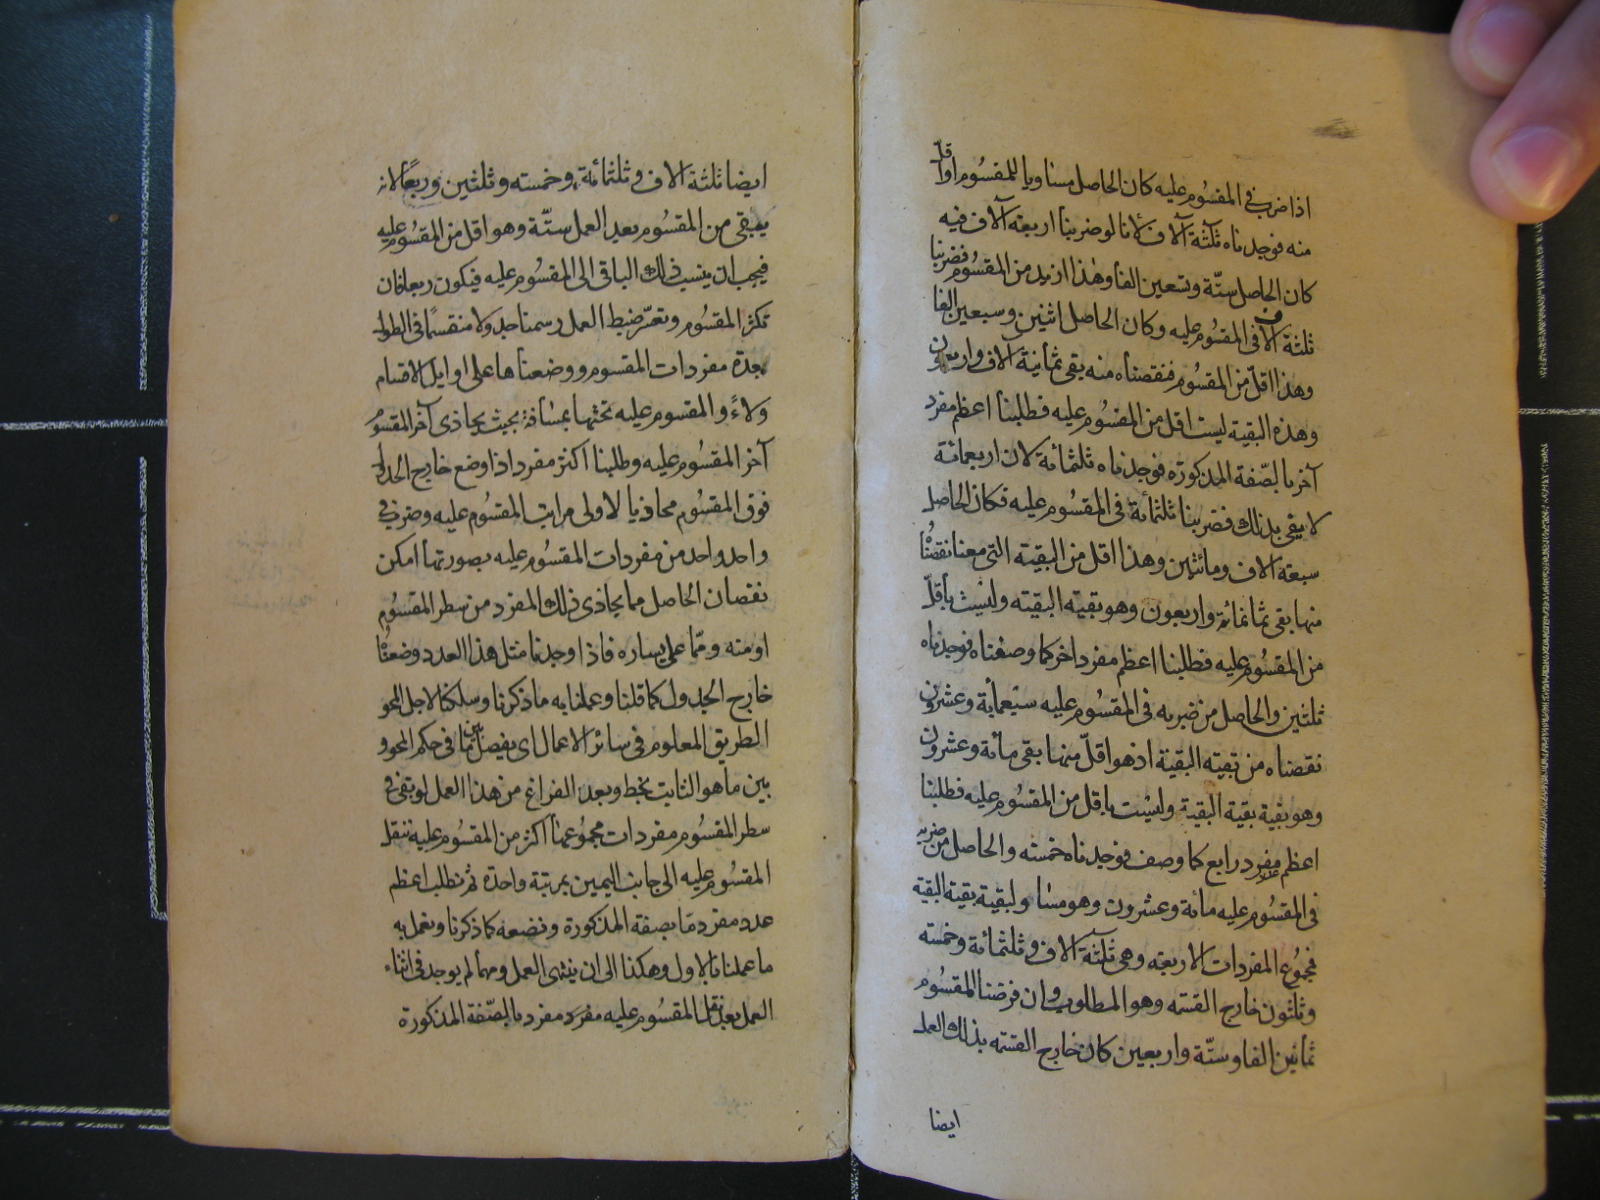 اذا ضرب فى المقسوم عليه كان الحاصل مساويا للمقسوم او اقل
منه فوجدناه ثلثة آلاف لأنا لو ضربنا اربعة آلاف فيه
كان الحاصل ستّة وتسعين الفا وهذا ازيد من المقسوم فضربنا
ثلثة آلاف فى المقسوم عليه وكان الحاصل اثنين وسبعين الفا
وهذا اقلّ من المقسوم فنقصناه منه بقى ثمانية آلاف واربعون
وهذه البقية ليست اقل من المقسوم عليه فطلبنا اعظم مفرد
آخر بالصّفة المذكورة فوجدناه ثلثمائة لان اربعمائة
لا يفى بذلك فضربنا ثلثمائة فى المقسوم عليه فكان الحاصل
سبعة آلاف ومائتين وهذا اقل من البقية التى معنا نقصناها
منها بقى ثمانمائة واربعون وهو بقية البقية وليست بأقلّ
من المقسوم عليه فطلبنا اعظم مفرد اخر كما وصفناه فوجدناه
ثلثين والحاصل من ضربه فى المقسوم عليه سبعمائة وعشرون
نقصناه من بقية البقية اذ هو اقلّ منها بقى مائة وعشرون
وهو بقية بقية البقية وليست باقل من المقسوم عليه فطلبنا
اعظم مفرد رابع كما وصف فوجدناه خمسة والحاصل من ضربه
فى المقسوم عليه مائة وعشرون وهو مساو لبقية بقية البقية
فمجموع المفردات الاربعة وهى ثلثة آلاف وثلثمائة وخمسة
وثلثون خارج القسمة وهو المطلوب وان فرضنا المقسوم
ثمانين الفا وستّة واربعين كان خارج القسمة بذلك العمل
ايضا
ايضا ثلثة آلاف وثلثمائة وخمسة وثلثين وربعا لانه
يبقى من المقسوم بعد العمل ستّة وهو اقل من المقسوم عليه
فيجب ان ينسب ذلك الباقى الى المقسوم عليه فيكون ربعا فان
تكثر المقسوم وتعسّر ضبط العمل رسمنا جدولا منقسما فى الطول
بعدة مفردات المقسوم ووضعناها على اوايل الاقسام
ولاءً والمقسوم عليه تحتها بمسافة بحيث يحاذى آخر المقسوم
آخر المقسوم عليه وطلبنا اكثر مفرد اذا وضع خارج الجدول
فوق المقسوم محاذيا لاولى مراتب المقسوم عليه وضرب فى
واحد واحد من مفردات المقسوم عليه بصورتها امكن
نقصان الحاصل مما يحاذى ذلك المفرد من سطر المقسوم
او منه وممّا على يساره فاذا وجدنا مثل هذا العدد وضعناه
خارج الجدول كما قلنا وعملنا به ما ذكرنا وسلكنا لاجل المحو
الطريق المعلوم فى سائر الاعمال اى يفصل بين ما فى حكم المحو و
بين ما هو الثابت بخط وبعد الفراغ من هذا العمل لو بقى فى
سطر المقسوم مفردات مجموعها اكثر من المقسوم عليه ننقل
المقسوم عليه الى جانب اليمين بمرتبة واحدة ثم نطلب اعظم
عدد مفرد مّا بصفة المذكورة ونضعه كما ذكرنا ونعمل به
ما عملنا بالاول وهكذا الى ان ينتهى العمل ومهما لم يوجد فى اثناء
العمل بعد نقل المقسوم عليه مفرد بالصّفة المذكورة